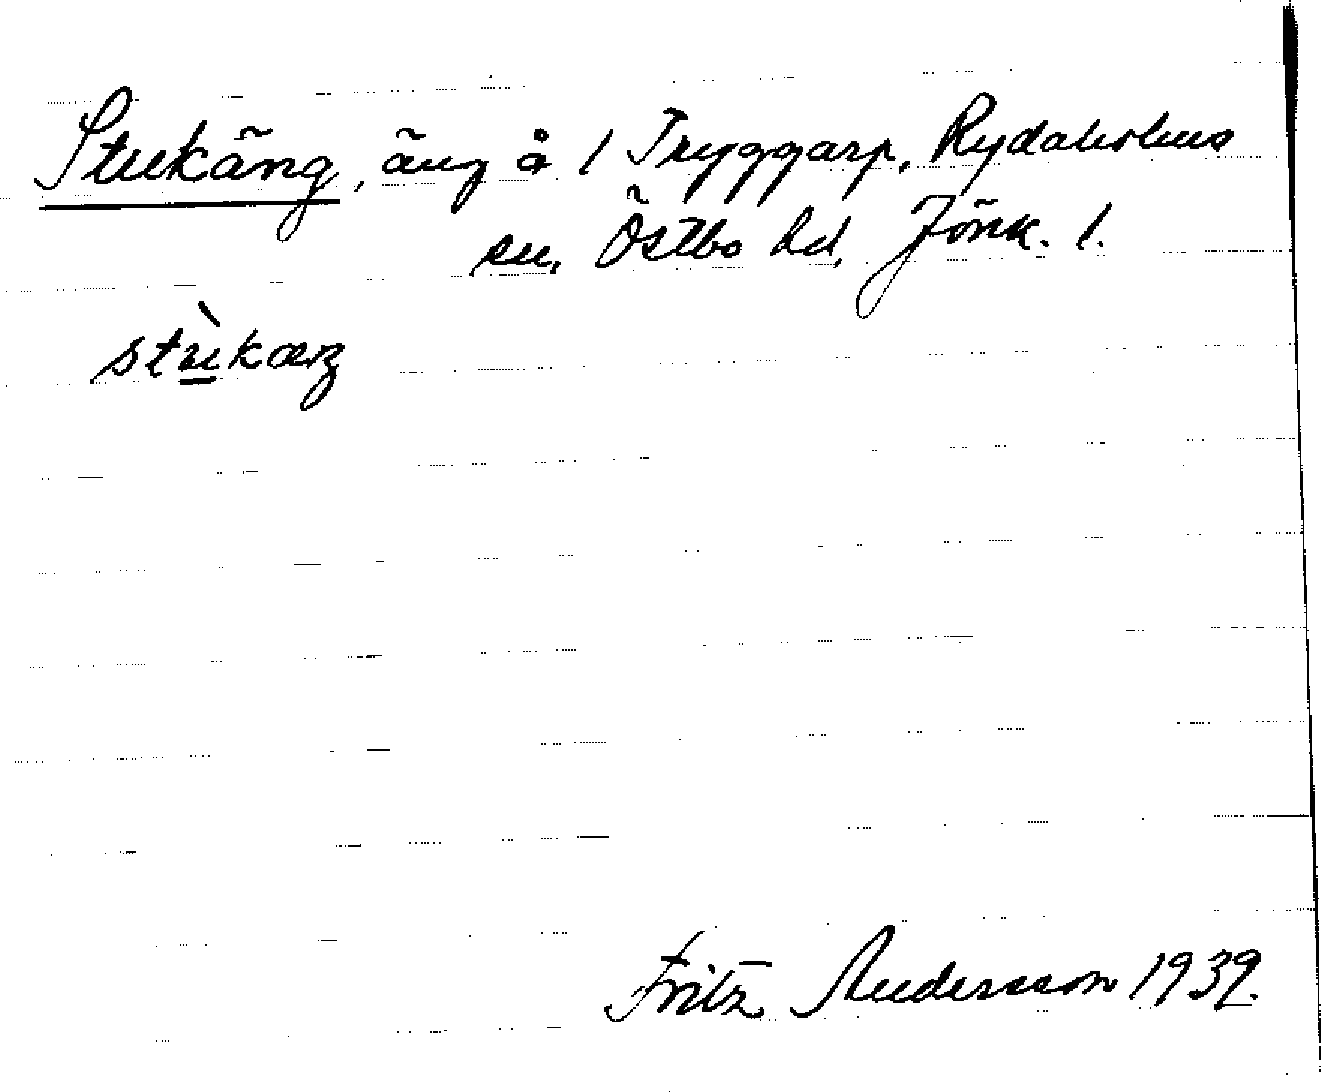 Stukäng, äng å 1 Tryggarp, Rydaholms
sn, Östbo hd, Jönk. l.
stùkæŋ
Fritz Andersson 1939.